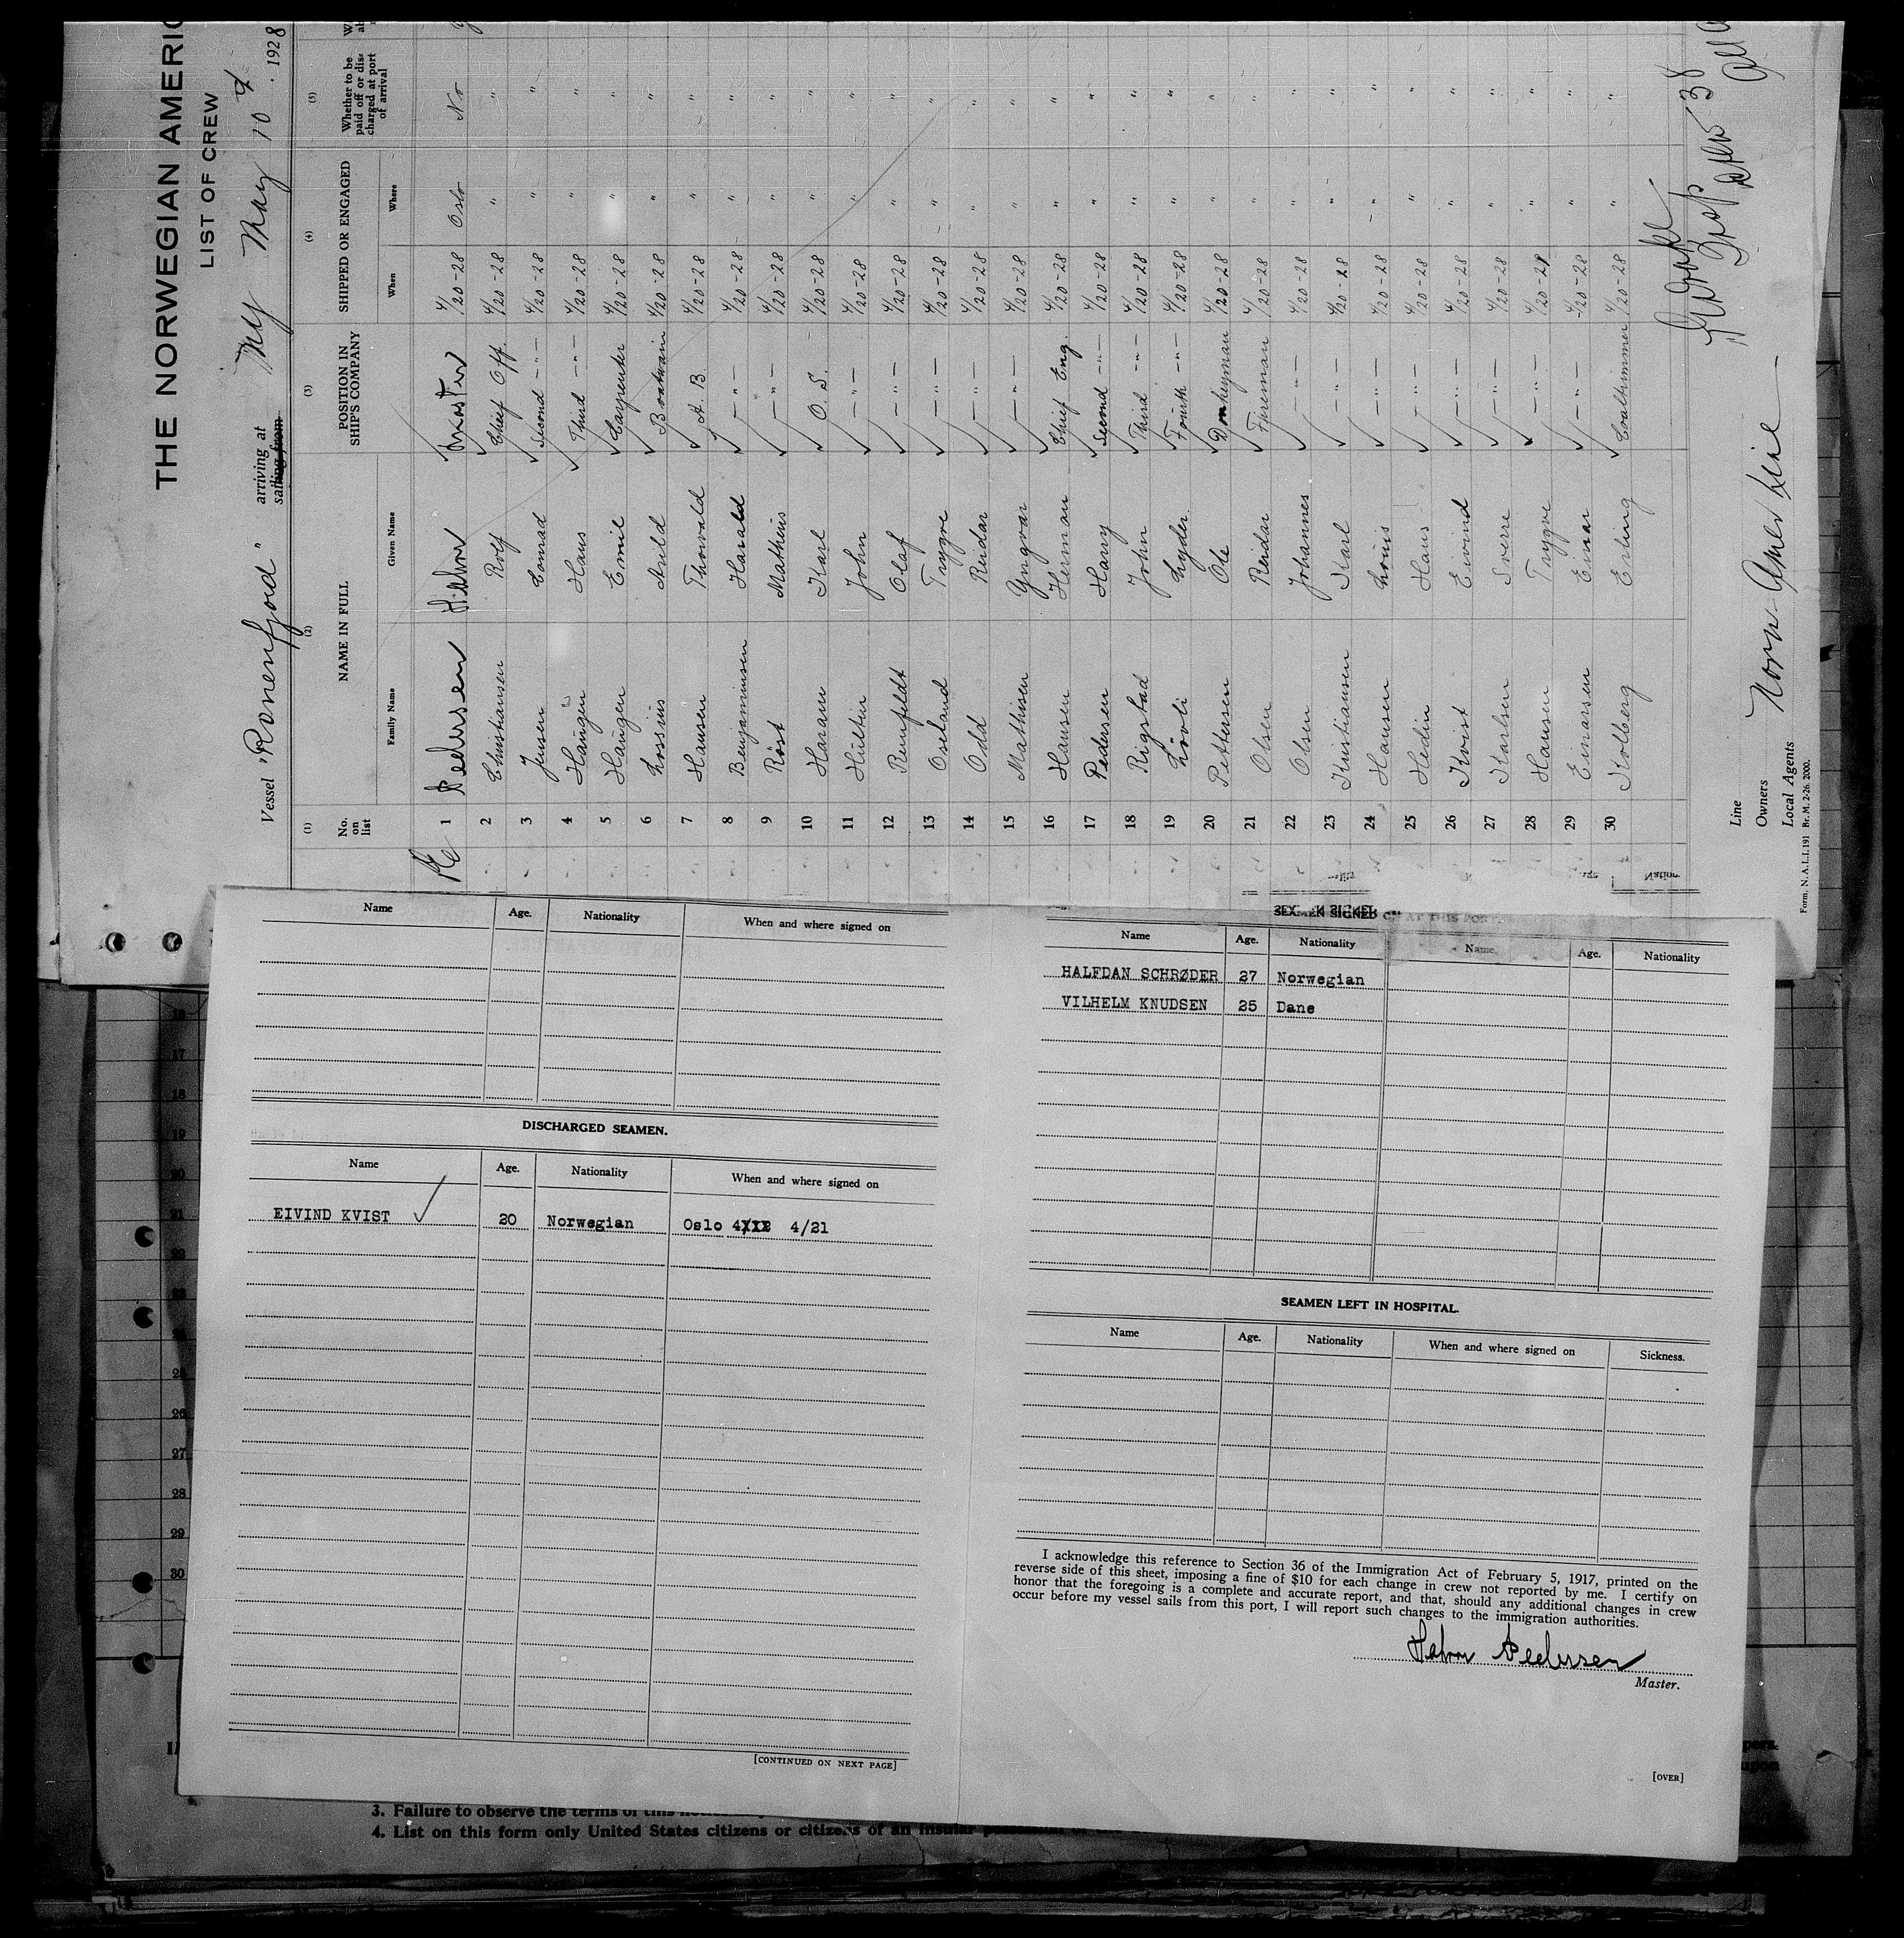 THE NORWEGIAN AMERIC
LIST OF CREW
Vessel "Ranenfjord" arriving at NY May 10th 1928
sailing from
(1) (2) (3) (4) (5)
No. on list
NAME IN FULL
POSITION IN SHIP'S COMPANY
SHIPPED OR ENGAGED
Whether to be paid off or discharged at port of arrival
Family Name Given Name When Where
1 Pedersen Master 4/20-28 Oslo No
2 Christiansen Rolf Chief Off. 4/20-28 " "
3 Jensen Conrad Second -"- 4/20-28 " "
4 Haugen Hans Third -"- 4/20-28 " "
5 Haugen Emil Carpenter 4/20-28 " "
6 Lossius Arild Boatswain 4/20-28 " "
7 Hansen Thorvald A. B 4/20-28 " "
8 Benjaminsen Harald -"- 4/20-28 " "
9 Röst Mathius -"- 4/20-28 " "
10 Haram Karl O. S. 4/20-28 " "
11 Hultin John -"- 4/20-28 " "
12 Rumfeldt Olaf -"- 4/20-28 " "
13 Oseland Trygve -"- 4/20-28 " "
14 Odd Reidar -"- 4/20-28 " "
15 Mathisen Yngvar -"- 4/20-28 " "
16 Hansen Herman Chief Eng. 4/20-28 " "
17 Pedersen Harry Second -"- 4/20-28 " "
18 Rigstad John Third -"- 4/20-28 " "
19 Lövli Lyder Fourth -"- 4/20-28 " "
20 Pettersen Ole Donkeyman 4/20-28 " "
21 Olsen Reidar Fireman 4/20-28 " "
22 Olsen Johannes -"- 4/20-28 " "
23 Kristiansen Karl -"- 4/20-28 " "
24 Hansen Louis -"- 4/20-28 " "
25 Hedin Hans -"- 4/20-28 " "
26 Kvist Eivind -"- 4/20-28 " "
27 Karlsen Sverre -"- 4/20-28 " "
28 Hansen Trygve -"- 4/20-28 " "
29 Einarsen Einar -"- 4/20-28 " "
30 Kolberg Erling Coaltrimmer 4/20-28 " "
Line
Owners Norw-Amer Line
Local Agents
Form N. A. L. I. 191 Br. M. 2-26. 2000.
38
Name Age. Nationality When and where signed on
DISCHARGED SEAMEN.
Name Age. Nationality When and where signed on
EIVIND KVIST 20 Norwegian Oslo 4/21
[CONTINUED ON NEXT PAGE]
SEAMEN SIGNED ON AT THIS PORT.
Name Age. Nationality Name. Age. Nationality
HALFDAN SCHRØDER 27 Norwegian
VILHELM KNUDSEN 25 Dane
SEAMEN LEFT IN HOSPITAL.
Name Age. Nationality When and where signed on Sickness.
I acknowledge this reference to Section 36 of the Immigration Act of February 5, 1917, printed on the
reverse side of this sheet, imposing a fine of $10 for each change in crew not reported by me. I certify on
honor that the foregoing is a complete and accurate report, and that, should any additional changes in crew
occur before my vessel sails from this port, I will report such changes to the immigration authorities.
Pedersen
Master.
[OVER]
17
18
19
20
21
22
23
25
26
27
28
29
30
3. Failure to observe the terms of this
4. List on this form only United States citizens or citizens of an insular